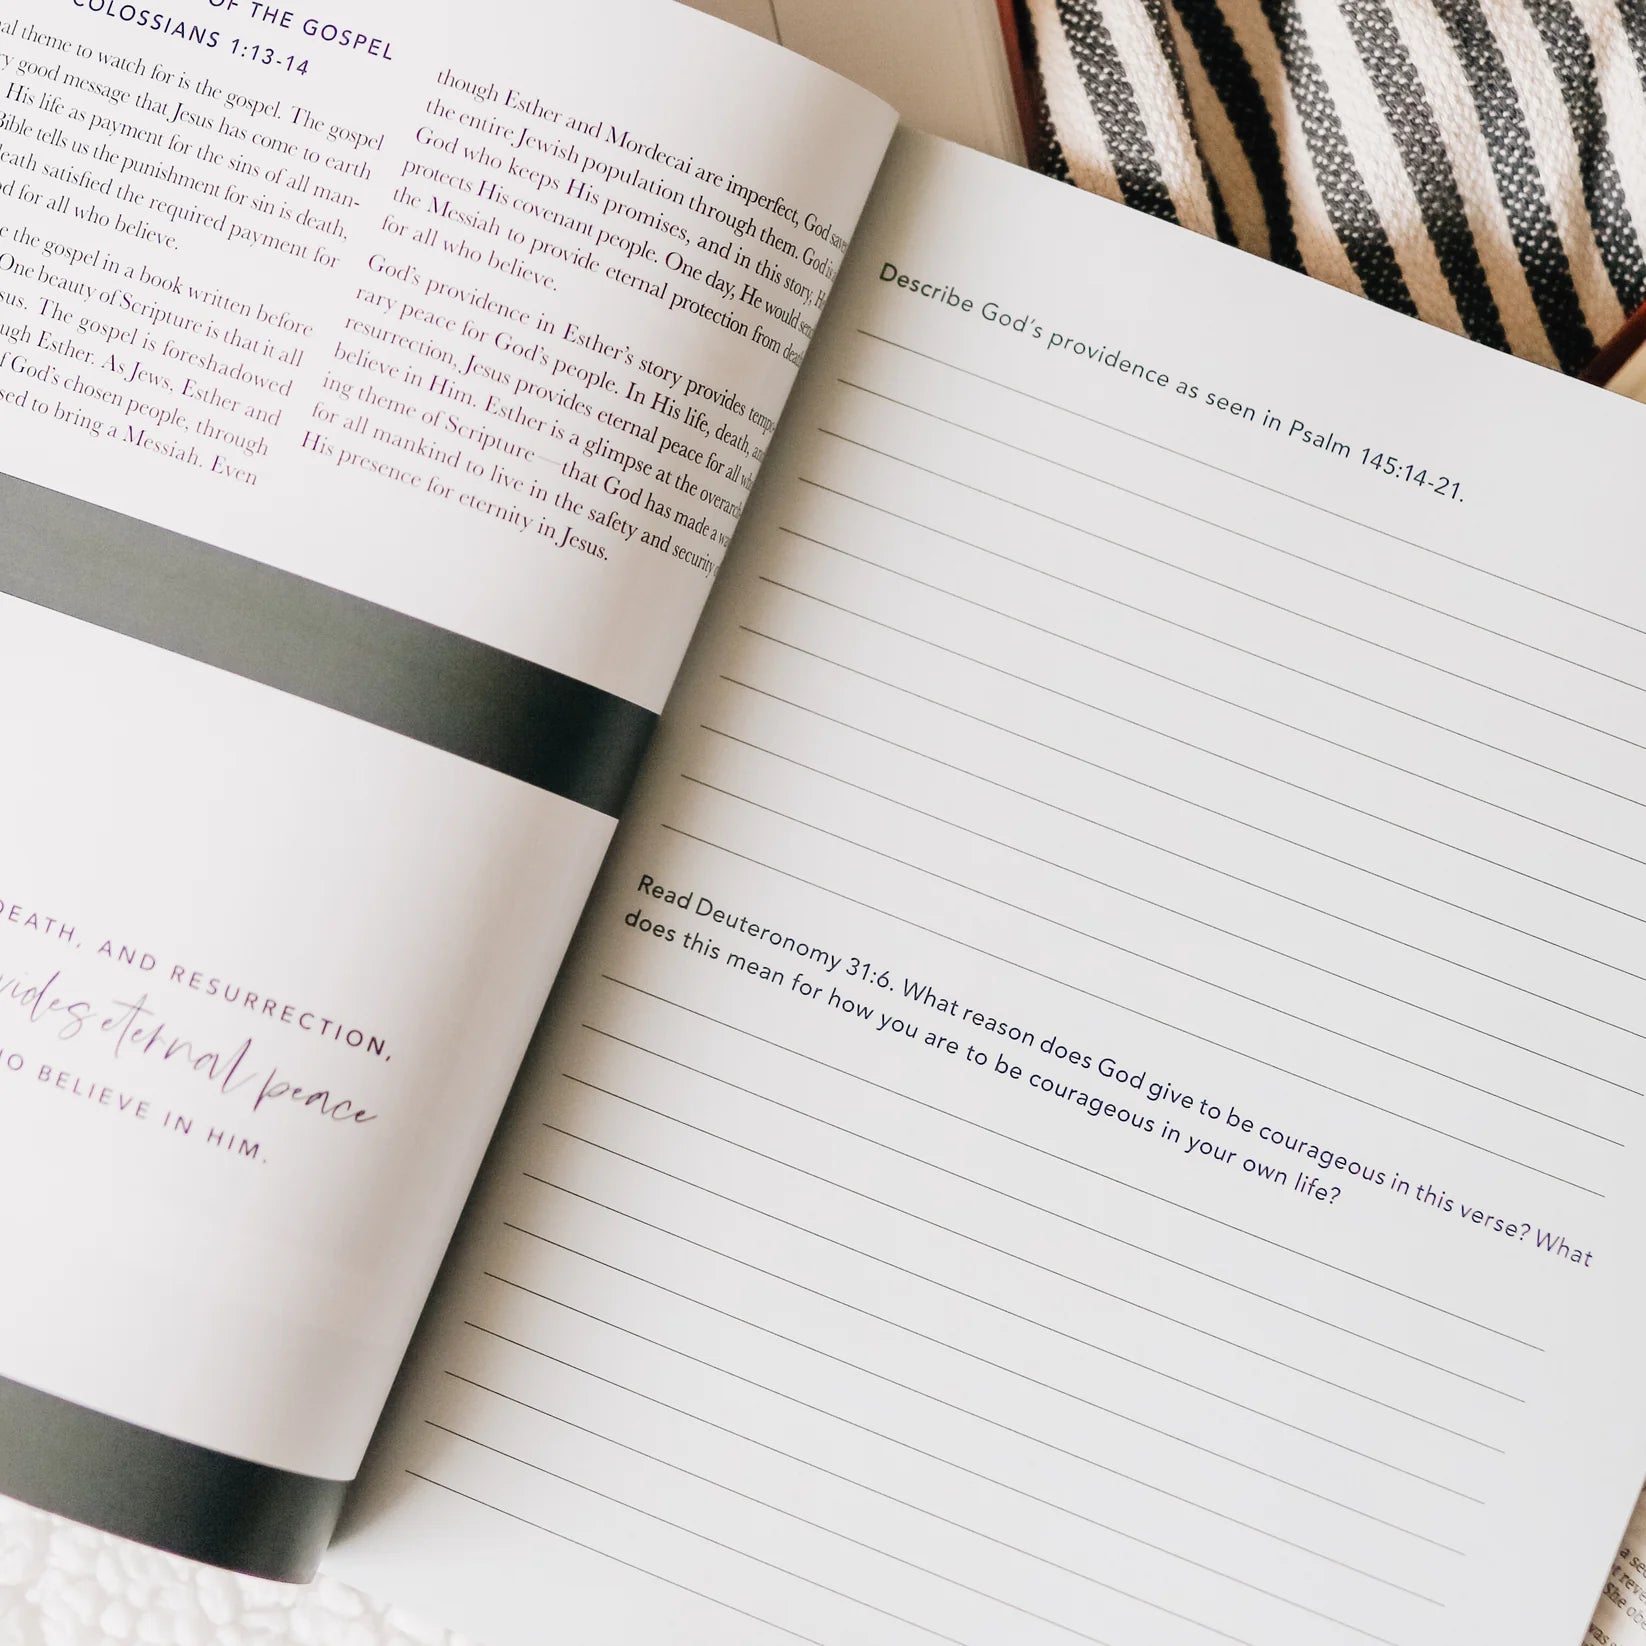 OF THE GOSPEL
COLOSSIANS 1:13-14
theme to watch for is the gospel. The gospel
good message that Jesus has come to earth
His life as payment for the sins of all man-
Bible tells us the punishment for sin is death,
death satisfied the required payment for
for all who believe.
the gospel in a book written before
One beauty of Scripture is that it all
The gospel is foreshadowed
Esther. As Jews, Esther and
of God's chosen people, through
to bring a Messiah. Even
though Esther and Mordecai are imperfect, God
the entire Jewish population through them. God is
God who keeps His promises, and in this story,
protects His covenant people. One day, He would
the Messiah to provide eternal protection from
for all who believe.
God's providence in Esther's story provides
rary peace for God's people. In His life, death,
resurrection, Jesus provides eternal peace for all
believe in Him. Esther is a glimpse at the
ing theme of Scripture—that God has made a
for all mankind to live in the safety and security
His presence for eternity in Jesus.
DEATH, AND RESURRECTION,
eternal peace
BELIEVE IN HIM.
Describe God's providence as seen in Psalm 145:14-21.
Read Deuteronomy 31:6. What reason does God give to be courageous in this verse? What
does this mean for how you are to be courageous in your own life?